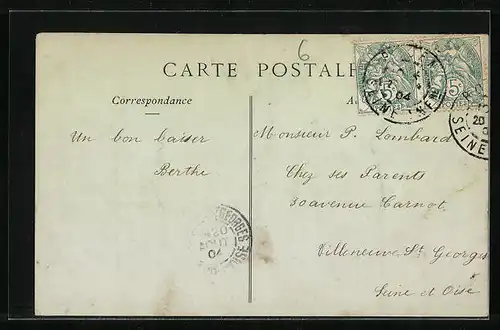 6
CARTE POSTALE
Correspondance
Un bon baiser
Berthe
Monsieur P. Lombard
Chez ses Parents
30 avenue Carnot
Villeneuve St Georges
Seine et Oise
5
5
04
20
SEINE
GEORGES
20
AOUT
04